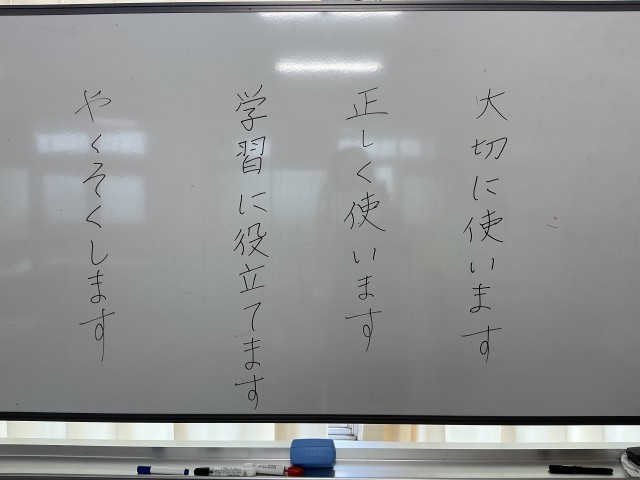 大切に使います
正しく使います
学習に役立てます
やくそくします